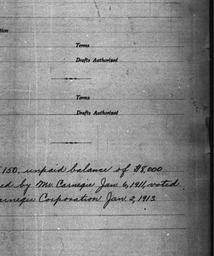 tion
Terms
Drafts Authorized
Terms
Drafts Authorized
150, unpaid balance of $8,000
ed by Mr. Carnegie Jan 6, 1911, voted
arnegie Corporation Jan 2, 1913